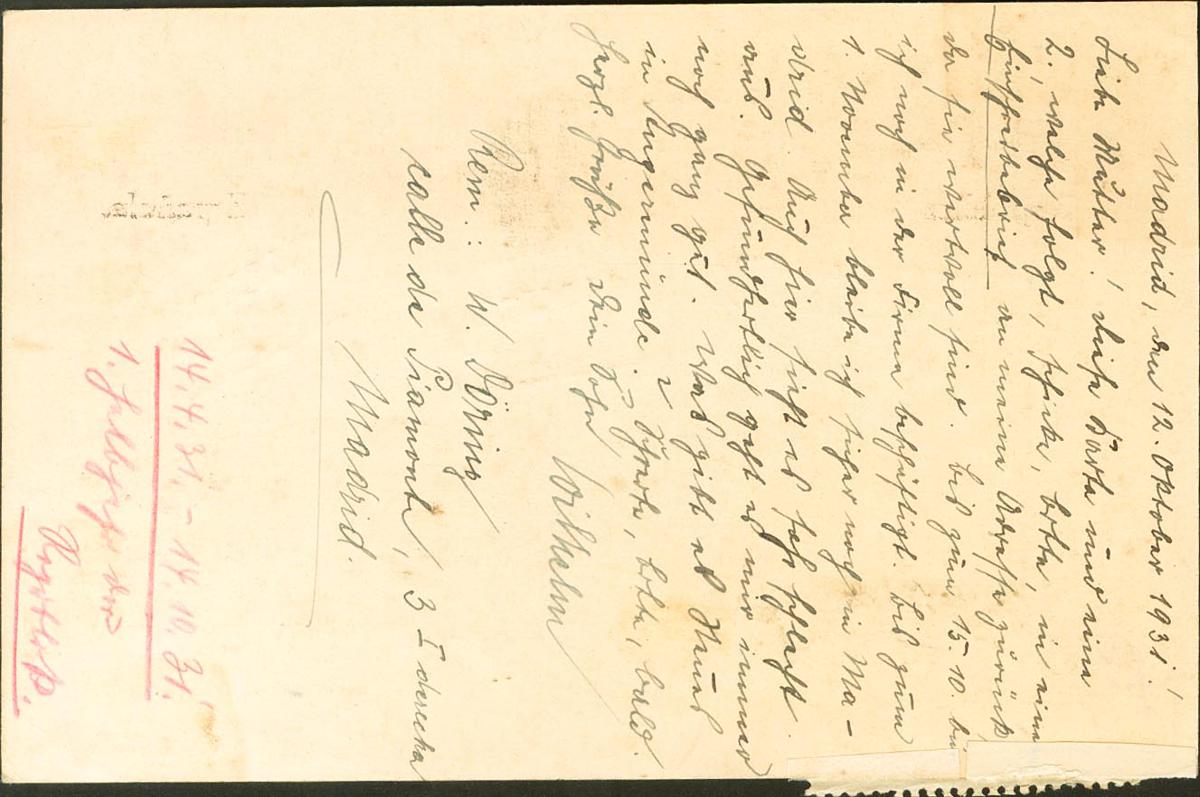 Madrid, den 12. Oktober 1931!
Liebe Mutter! Diese Karte und eine
2., welche folgt, schicke, bitte, in einem
Einschreibebrief an meine Adresse zurück,
da sie wertvoll sind. Bis zum 15.10. bin
ich noch in der Firma beschäftigt. Bis zum
1. November bleibe ich sicher noch in Ma-
drid. Auch hier sieht es sehr schlecht
aus. Gesundheitlich geht es mir immer
noch ganz gut. Was gibt es Neues
in Angermünde? Schreibe, bitte, bald.
Herzl. Grüße Dein Sohn, Wilhelm
Rem.: W. Döring
calle de Piamonte, 3 I derecha
Madrid.
14.4.31. – 14.10.31!
1. Halbjahr der
Republik.